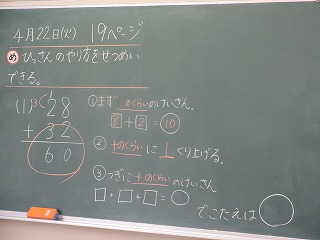 4月22日(火) 19ページ
め ひっさんのやり方をせつめい
できる。
(1) 28
+ 32
60
①まず 一のくらいのけいさん。
8 + 2 = 10
② 十のくらいに 1 くり上げる。
③つぎに 十のくらい のけいさん
□ + □ + □ = ○
でこたえは ○